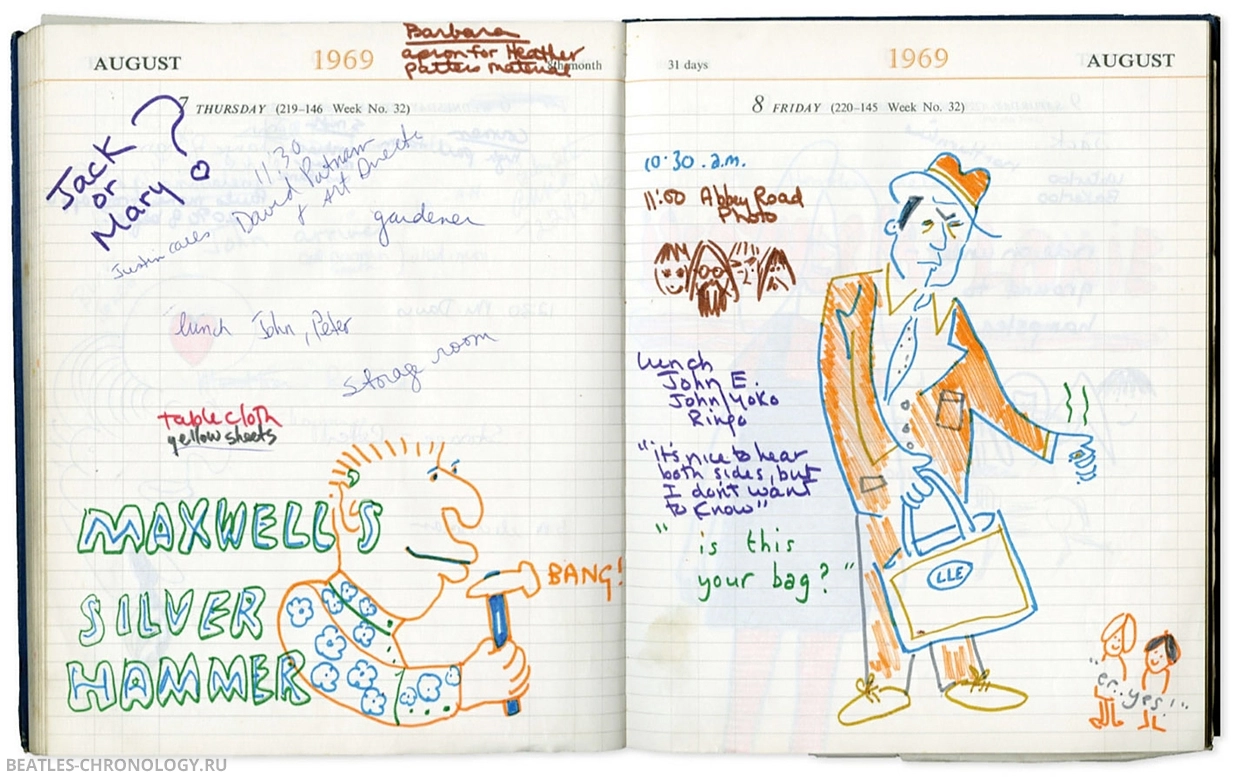 AUGUST
1969
Barbara
apron for Heather
pattern material
8th month
7 THURSDAY (219–146 Week No. 32)
Jack
or
Mary?
11:30
David Putnam
& Art Directr
gardener
Justin calls
lunch John, Peter
Storage room
table cloth
yellow sheets
MAXWELL'S
SILVER
HAMMER
BANG!
31 days
1969
AUGUST
8 FRIDAY (220–145 Week No. 32)
10.30.a.m.
11:00 Abbey Road
Photo
lunch
John E.
John/Yoko
Ringo
"it's nice to hear
both sides, but
I don't want
to know"
" is this
your bag? "
LLE
"er..yes!"
BEATLES-CHRONOLOGY.RU